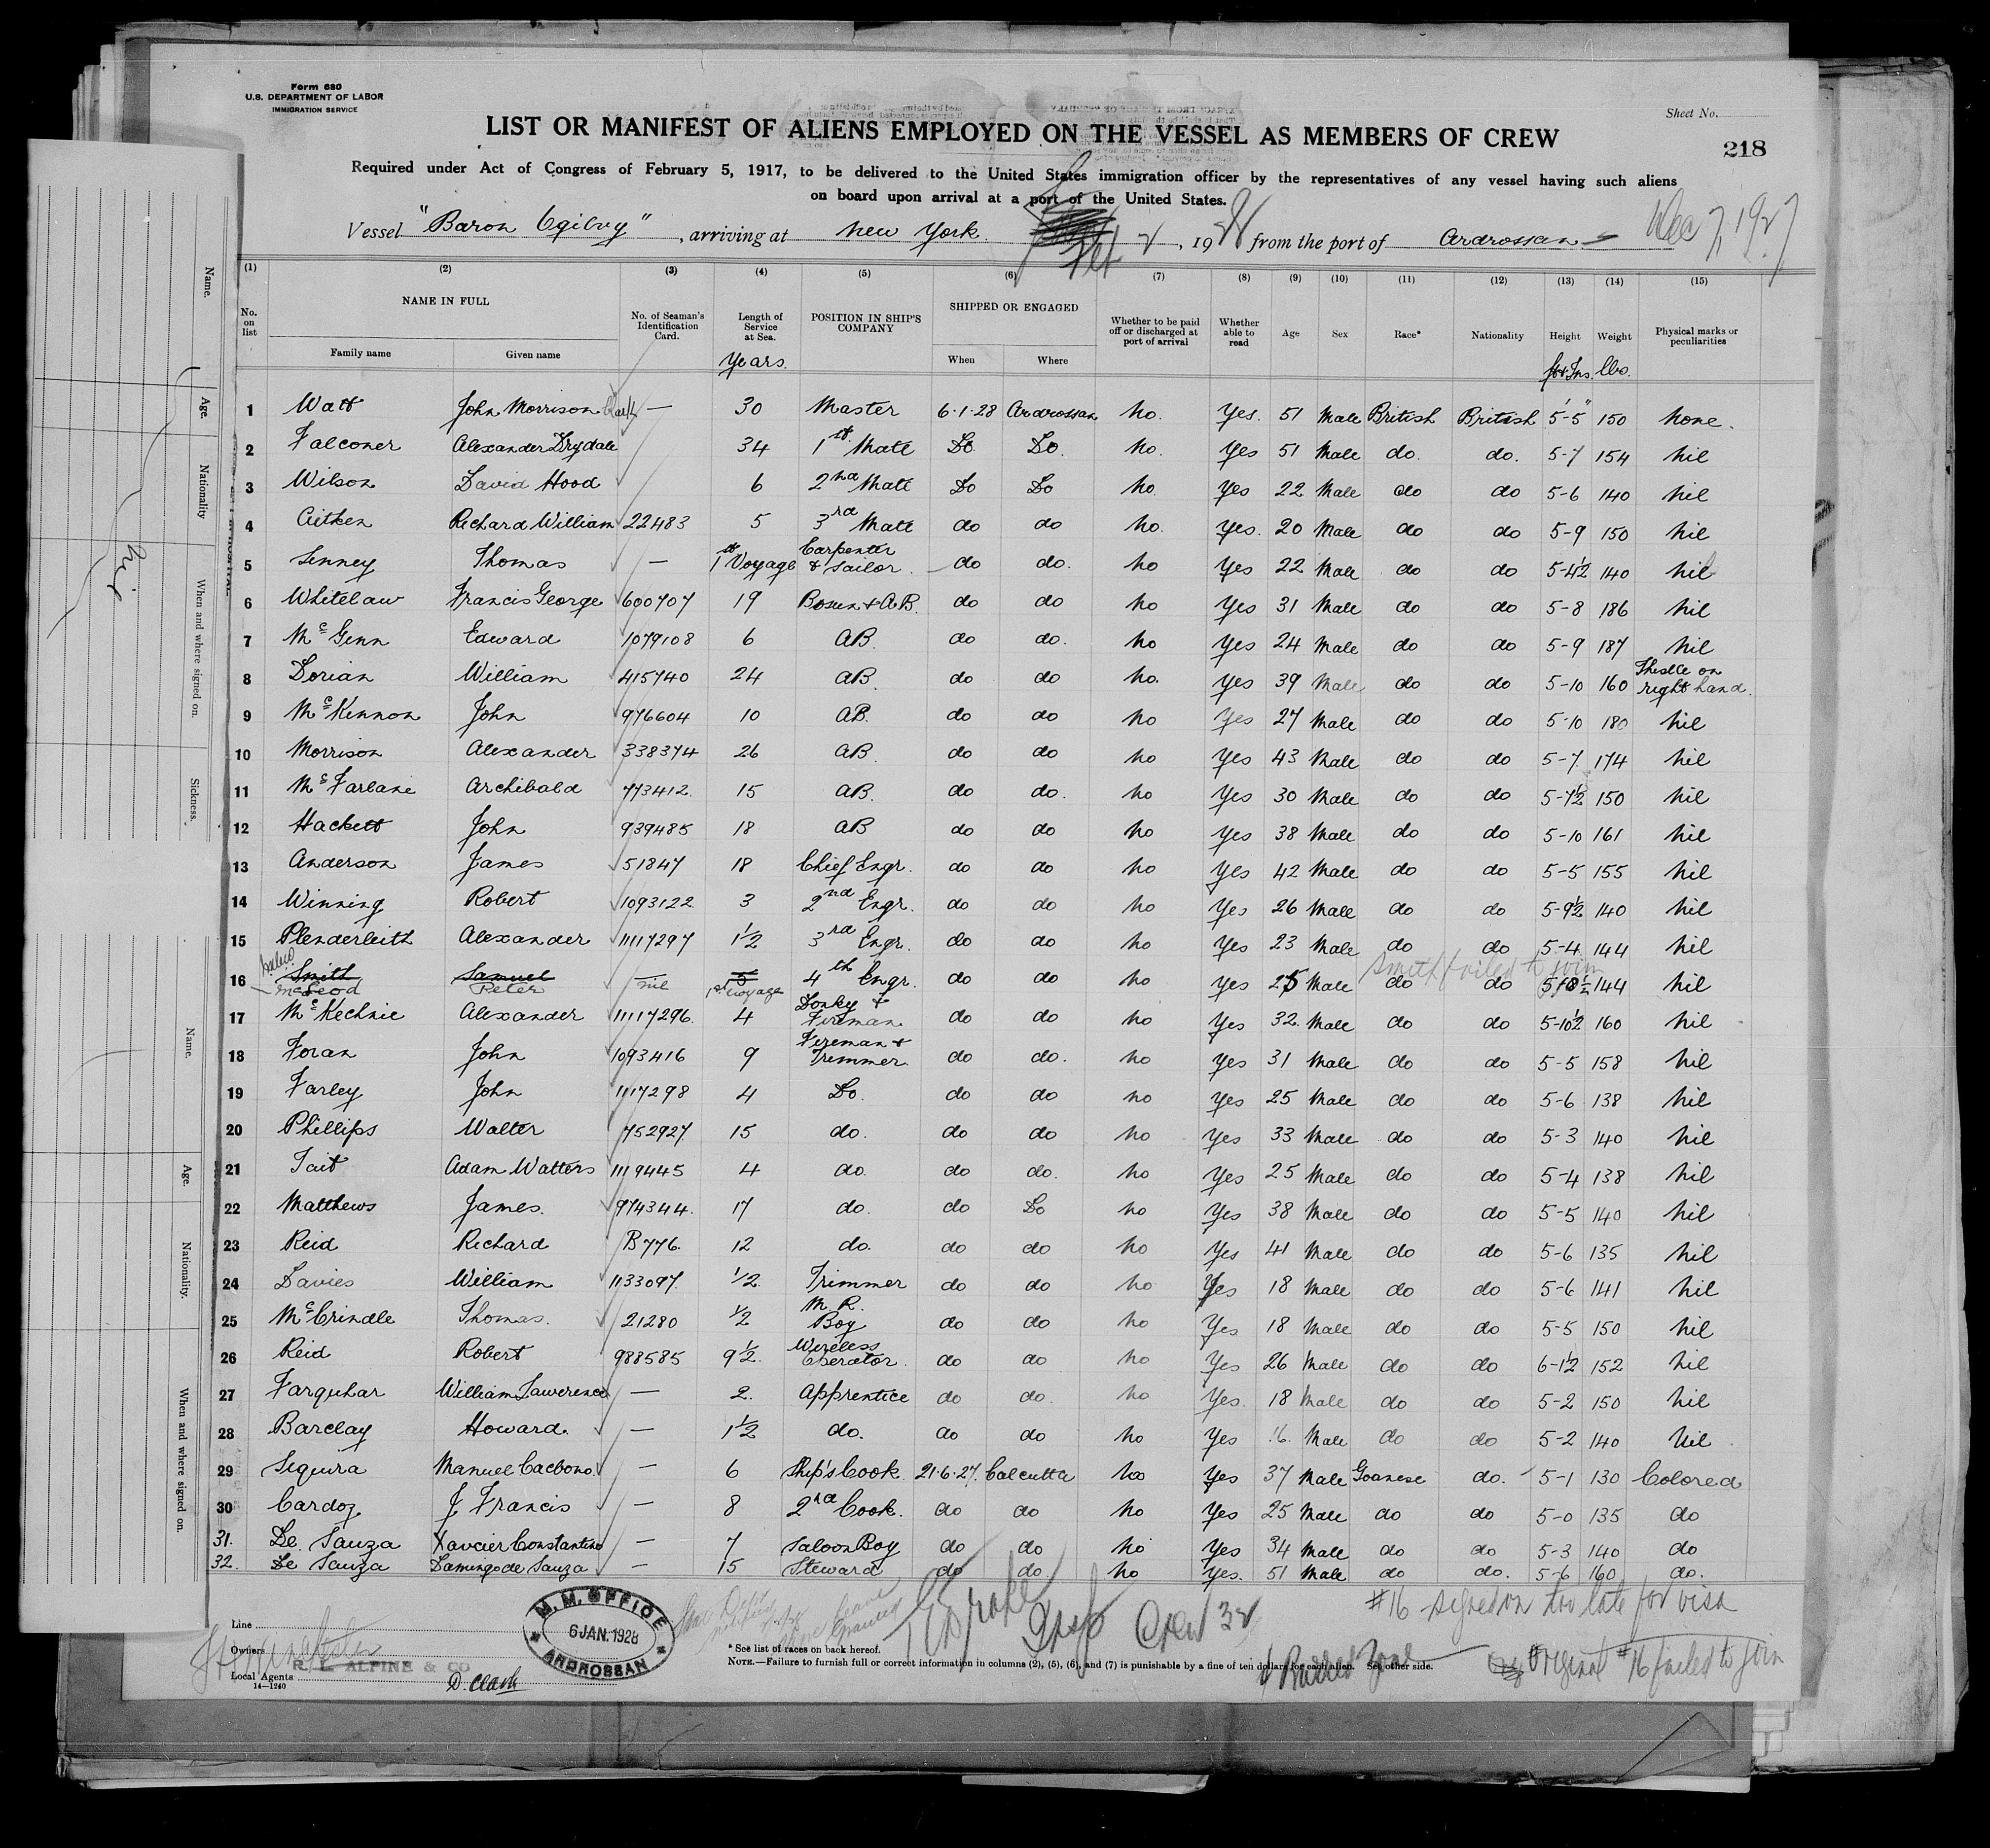 Form 680
U.S. DEPARTMENT OF LABOR
IMMIGRATION SERVICE
Sheet No.
LIST OR MANIFEST OF ALIENS EMPLOYED ON THE VESSEL AS MEMBERS OF CREW
218
Required under Act of Congress of February 5, 1917, to be delivered to the United States immigration officer by the representatives of any vessel having such aliens
on board upon arrival at a port of the United States.
Dec 7, 1927
Vessel "Baron Ogilvy", arriving at New York. Feb 2, 1928 from the port of Ardrossan
(1) (2) (3) (4) (5) (6) (7) (8) (9) (10) (11) (12) (13) (14) (15)
No. on list NAME IN FULL Family name Given name No. of Seaman's Identification Card. Length of Service at Sea. Years. POSITION IN SHIP'S COMPANY SHIPPED OR ENGAGED When Where Whether to be paid off or discharged at port of arrival Whether able to read Age Sex Race* Nationality Height ft & Ins. Weight lbs. Physical marks or peculiarities
1 Watt John Morrison Clark — 30 Master 6.1.28 Ardrossan No. Yes. 51 Male British British 5'-5" 150 None.
2 Falconer Alexander Drysdale 34 1st Mate Do. Do. No. Yes 51 Male do. do. 5-7 154 Nil
3 Wilson David Hood 6 2nd Mate Do Do No Yes 22 Male do do 5-6 140 Nil
4 Aitken Richard William 22483 5 3rd Mate do do No. Yes. 20 Male do do 5-9 150 Nil
5 Linney Thomas — 1st Voyage Carpenter & Sailor. do do. No Yes 22 Male do do 5-4½ 140 Nil
6 Whitelaw Francis George 600707 19 Bosun & A.B. do do No Yes 31 Male do do 5-8 186 Nil
7 McGinn Edward 1079108 6 AB. do do. No Yes 24 Male do do 5-9 187 Nil
8 Dorian William 415740 24 AB. do do No. Yes 39 Male do do 5-10 160 Thistle on right hand.
9 McKinnon John 976604 10 AB. do do No Yes 27 Male do do 5-10 180 Nil
10 Morrison Alexander 338374 26 AB. do do No Yes 43 Male do do 5-7 174 Nil
11 McFarlane Archibald 773412 15 AB. do do. No Yes 30 Male do do 5-7½ 150 Nil
12 Hackett John 939485 18 AB do do No Yes 38 Male do do 5-10 161 Nil
13 Anderson James 51847 18 Chief Engr. do do No Yes 42 Male do do 5-5 155 Nil
14 Winning Robert 1093122 3 2nd Engr. do do No Yes 26 Male do do 5-9½ 140 Nil
15 Plenderleith Alexander 1117297 1½ 3rd Engr. do do No Yes 23 Male do do 5-4 144 Nil
Smith failed to join
16 Smith Samuel 5 4th Engr. do do No Yes 25 Male do do 144 Nil
McLeod Peter nil 1st voyage
17 McKechnie Alexander 11117296. 4 Donkey & Fireman do do No Yes 32. Male do do 5-10½ 160 Nil
18 Foran John 1093416 9 Fireman & Trimmer. do do. No Yes 31 Male do do 5-5 158 Nil
19 Farley John 1117298 4 Do. do do No Yes 25 Male do do 5-6 138 Nil
20 Phillips Walter 752927 15 do. do do No Yes 33 Male do do 5-3 140 Nil
21 Tait Adam Watters 1119445 4 do. do do. No Yes 25 Male do do 5-4 138 Nil
22 Matthews James. 974344. 17 do. do Do No Yes 38 Male do do 5-5 140 Nil
23 Reid Richard B776. 12 do. do do No Yes 41 Male do do 5-6 135 Nil
24 Davies William 1133097. ½ Trimmer do do No Yes 18 Male do do 5-6 141 Nil
25 McCrindle Thomas. 21280 ½ M.R. Boy do do No Yes 18 Male do do 5-5 150 Nil
26 Reid Robert 988585 9½ Wireless Operator. do do No Yes 26 Male do do 6-1½ 152 Nil
27 Farquhar William Lawerence — 2. Apprentice do do No Yes. 18 Male do do 5-2 150 Nil
28 Barclay Howard. — 1½ do. do do No Yes 16. Male do do 5-2 140 Nil
29 Siqura Manuel — 6 Ship's Cook. 21.6.27. Calcutta No Yes 37 Male Goanese do. 5-1 130 Colored
30 Cardoz J Francis — 8 2nd Cook. do do No Yes 25 Male do do 5-0 135 do
31. De Sauza Xavcier Constantino — 7 Saloon Boy do do No Yes 34 Male do do 5-3 140 do
32. De Sauza Damingo de Sauza — 15 Steward do do No Yes. 51 Male do do. 5-6 160 do.
#16 signed on too late for visa
Crew 32
Original #16 failed to join
Line
Owners
Local Agents
R. L. ALPINE & CO
14—1240
D. Clark
M. M. OFFICE
6 JAN. 1928
ARDROSSAN
* See list of races on back hereof.
NOTE.—Failure to furnish full or correct information in columns (2), (5), (6), and (7) is punishable by a fine of ten dollars for each alien. See other side.
Name.
Age.
Nationality
When and where signed on.
Sickness.
Nil
Name.
Age.
Nationality.
When and where signed on.